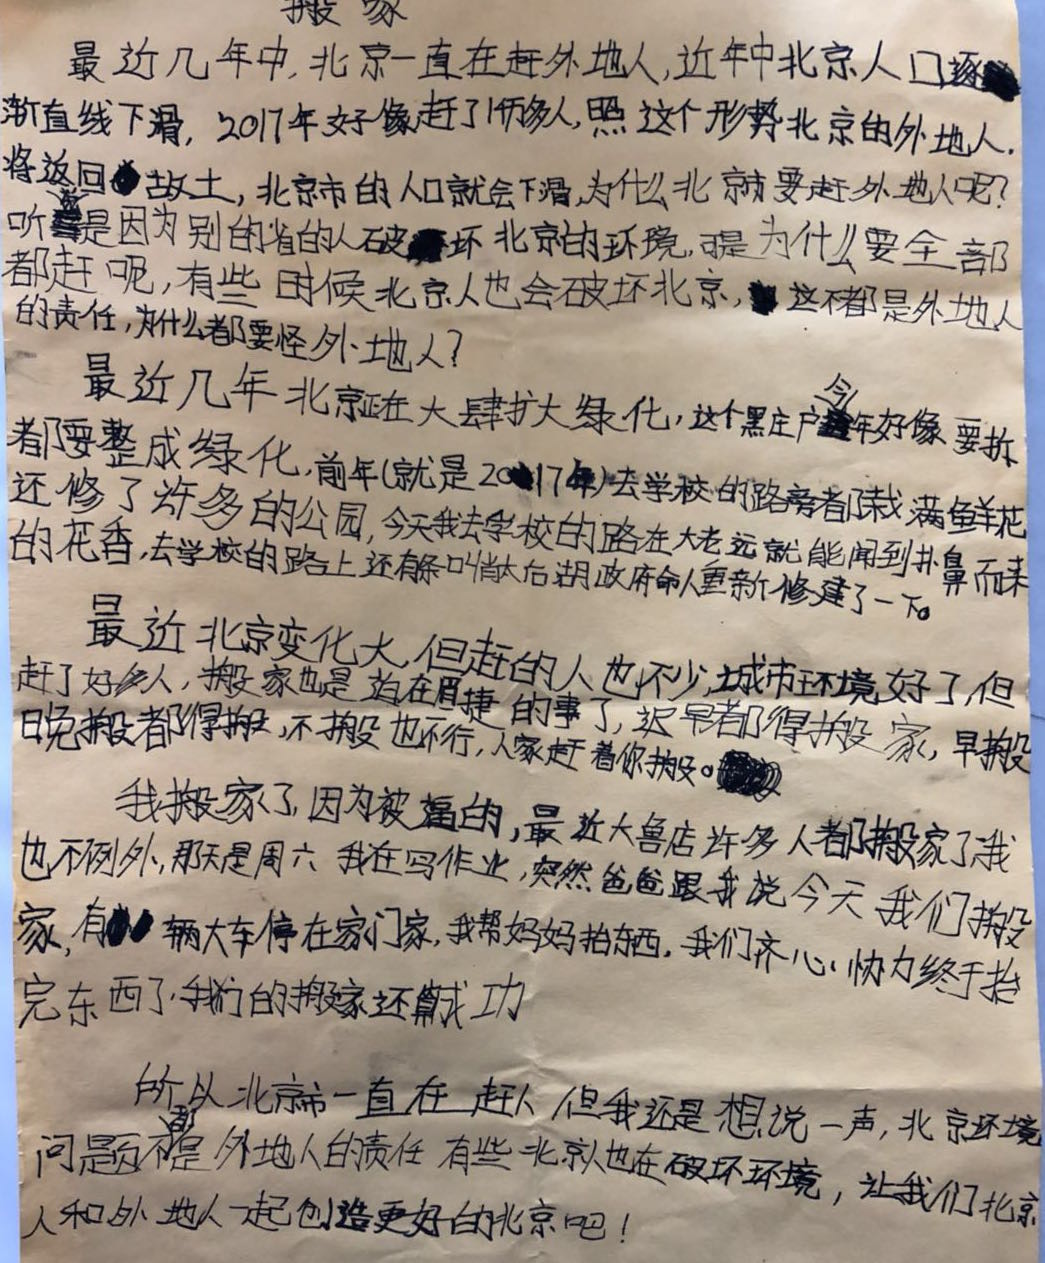 搬家
最近几年中,北京一直在赶外地人,近年中北京人口逐
渐直线下滑,2017年好像赶了1万多人,照这个形势北京的外地人.
将返回故土,北京市的人口就会下滑,为什么北京市要赶外地人呢?
听说是因为别的省的人破坏北京的环境,可是为什么要全部
都赶呢,有些时候北京人也会破坏北京,这不都是外地人
的责任,为什么都要怪外地人?
最近几年北京正在大肆扩大绿化,这个黑庄户今年好像要拆
都要整成绿化,前年(就是2017年)去学校的路旁都栽满鲜花
还修了许多的公园,今天我去学校的路在大老远就能闻到扑鼻而来
的花香,去学校的路上还有条叫萧太后湖政府命人重新修建了一下。
最近北京变化大,但赶的人也不少,城市环境好了,但
赶了好多人,搬家也是迫在眉捷的事了,迟早都得搬家,早搬
晚搬都得搬,不搬也不行,人家赶着你搬。
我搬家了,因为被逼的,最近大鲁店许多人都搬家了,我
也不例外,那天是周六我在写作业,突然爸爸跟我说今天我们搬
家,有辆大车停在家门家,我帮妈妈抬东西,我们齐心协力终于抬
完东西了,我们的搬家还算成功
所以北京市一直在赶人但我还是想说一声,北京环境
问题不都是外地人的责任有些北京人也在破坏环境,让我们北京
人和外地人一起创造更好的北京吧!